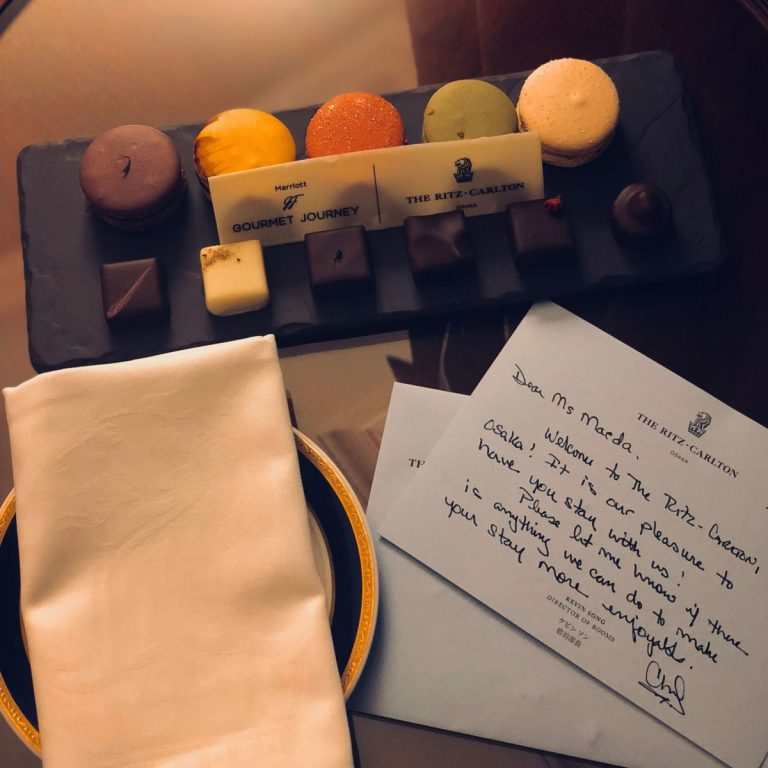 Marriott
GOURMET JOURNEY
THE RITZ-CARLTON
OSAKA
THE RITZ-CARLTON
OSAKA
Dear Ms Maeda.
Welcome to The Ritz-Carlton,
Osaka! It is our pleasure to
have you stay with us!
Please let me know if there
is anything we can do to make
your stay more enjoyable.
KEVIN SONG
DIRECTOR OF ROOMS
ケビン ソン
宿泊部長
TH